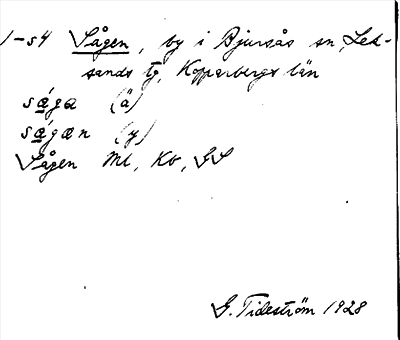 1-54 Sågen, by i Bjursås sn, Lek-
sands tg, Kopparbergs län
såga (ä)
sågæn (y)
Sågen Ml, Kb, GS
G. Tideström 1928